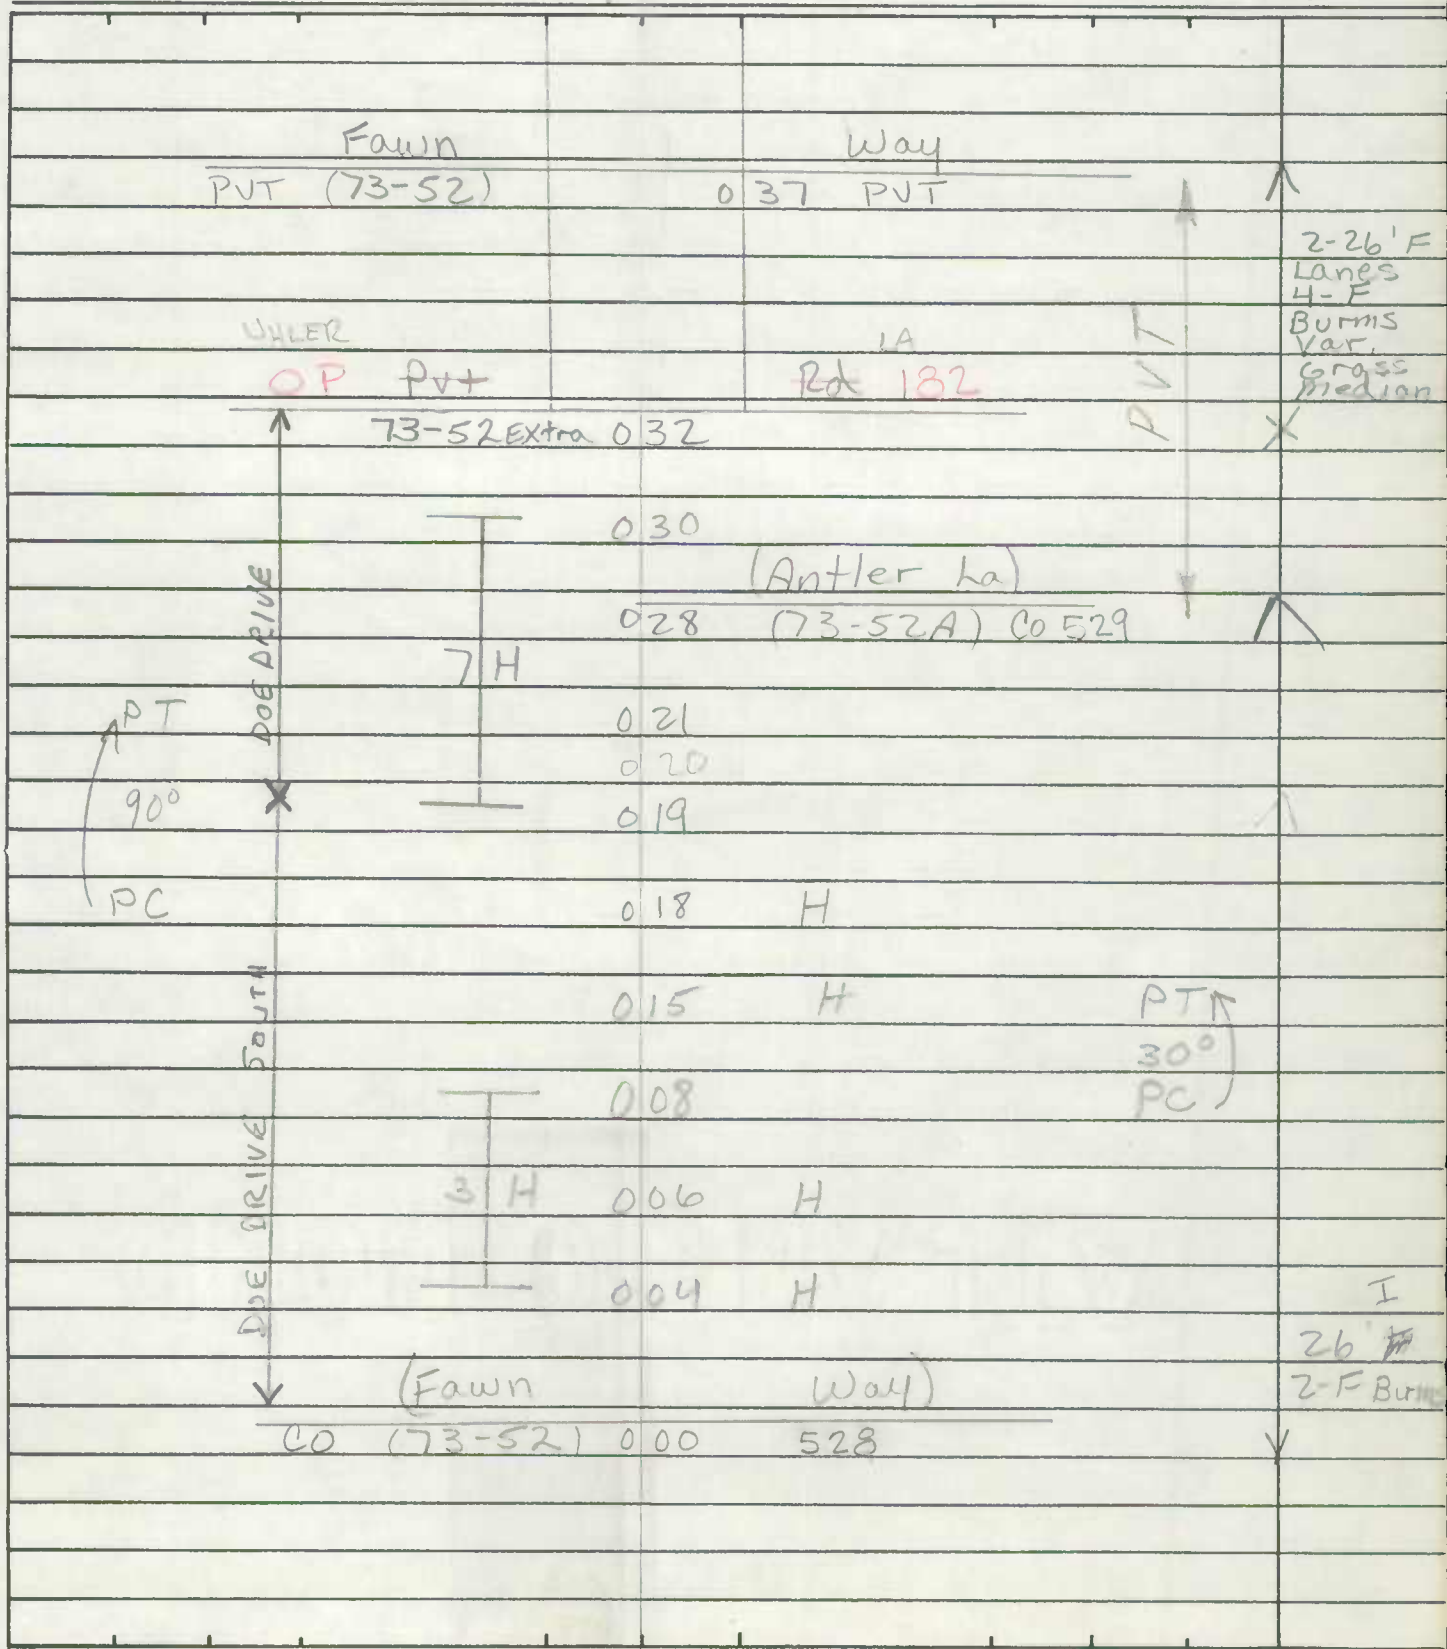 Fawn Way
PVT (73-52) 0 37 PVT
2-26' F
Lanes
4-F
Burms
Var.
Grass
Median
UHLER LA
OP Pvt Rd 182
PVT
73-52 Extra 0 32
0 30
(Antler La)
0 28 (73-52A) Co 529
DOE DRIVE
7 H
PT
0 21
0 20
90°
0 19
PC
0 18 H
0 15 H
PT
30°
PC
0 08
DOE DRIVE SOUTH
3 H 0 06 H
0 04 H
I
26'
2-F Burms
(Fawn Way)
CO (73-52) 0 00 528